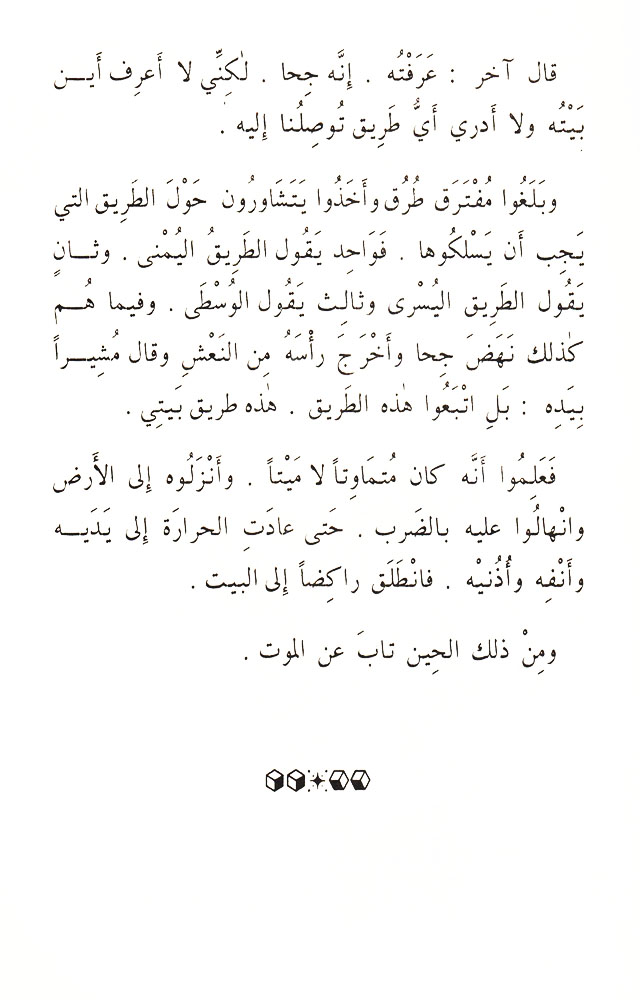 قال آخر : عَرَفْتُه . إنَّه جحا . لٰكِنِّي لا أَعرِف أَيـــن
بَيْتُه ولا أَدري أَيُّ طَرِيق تُوصِلُنا إليه .
وبَلَغُوا مُفْتَرَق طُرُق وأَخَذُوا يَتَشَاورُون حَوْلَ الطَرِيق التي
يَجِب أَن يَسْلكُوها . فَوَاحِد يَقُول الطَرِيقُ اليُمْنى . وثــانٍ
يَقُول الطَرِيق اليُسْرى وثالِث يَقُول الوُسْطَى . وفيما هُــم
كَذلك نَهَضَ جِحا وأَخْرَجَ رأْسَهُ مِن النَعْشِ وقال مُشِيــراً
بِيَدِه : بَلِ اتْبَعُوا هٰذه الطَريق . هٰذه طريق بَيتِي .
فَعَلِمُوا أَنَّه كان مُتمَاوِتاً لا مَيْتاً . وأَنْزَلُوه إلى الأَرض
وانْهالُوا عليه بالضَرب . حَتى عادَتِ الحرارَة إلى يَدَيــه
وأَنْفِه وأُذُنيْه . فانْطَلَق راكِضاً إلى البيت .
ومِنْ ذلك الحِين تابَ عن الموت .